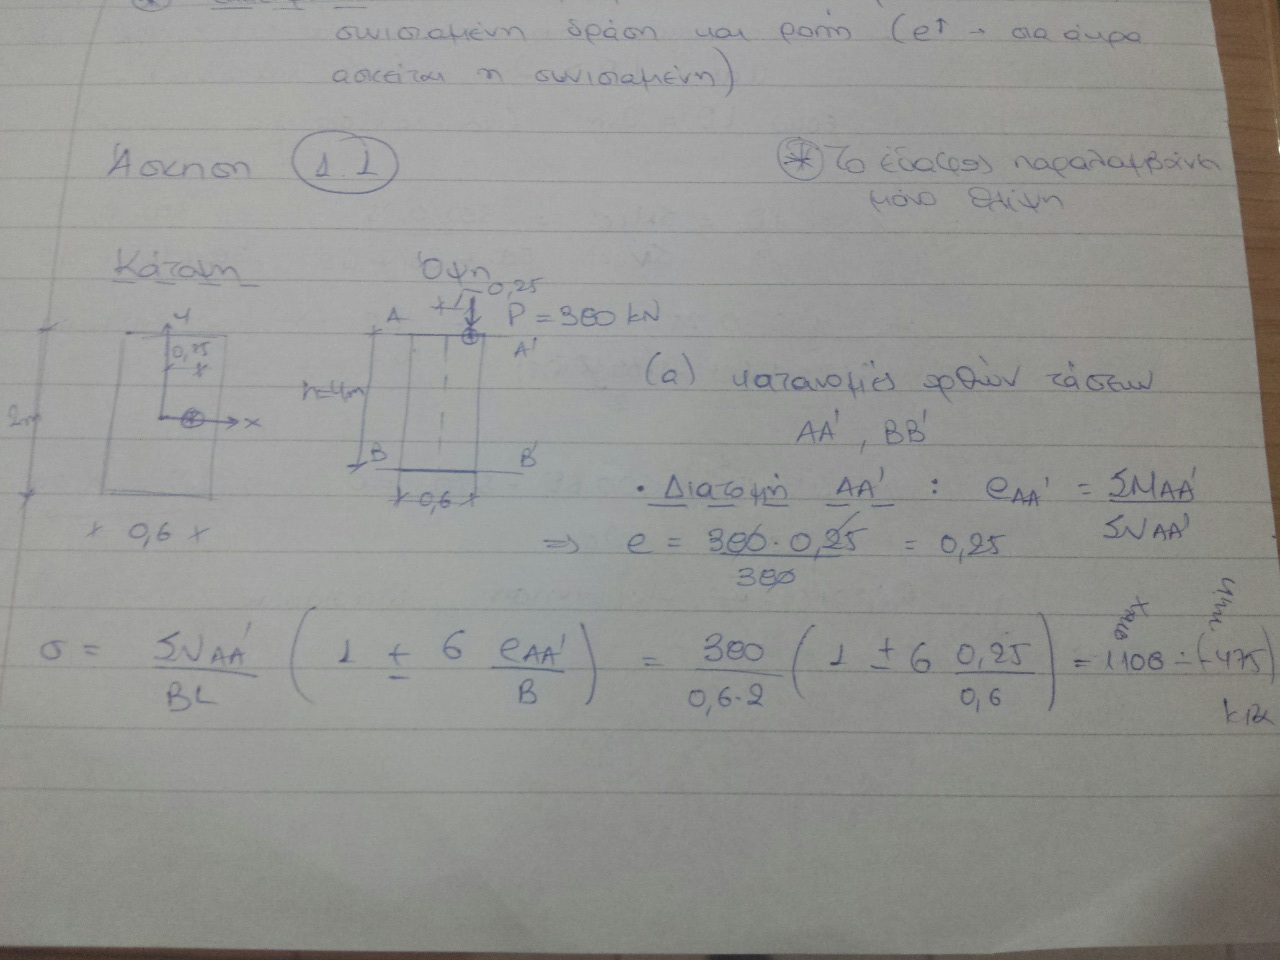 συνισταμένη δράση και ροπή (e↑ → στα άκρα
ασκείται η συνισταμένη)
Άσκηση 1.1
* Το έδαφος παραλαμβάνει
μόνο θλίψη
Κάτοψη
Όψη
y
0,25
x
2m
0,6
0,25
P = 380 kN
A
A'
h=4m
B
B'
0,6
(α) κατανομές ορθών τάσεων
AA' , BB'
• Διατομή AA' : eAA' = ΣMAA' / ΣNAA'
=> e = 380·0,25 / 380 = 0,25
σ = ΣNAA' / BL ( 1 ± 6 eAA' / B ) = 380 / 0,6·2 ( 1 ± 6 0,25 / 0,6 ) = 1108 ÷ (-475)
kPa